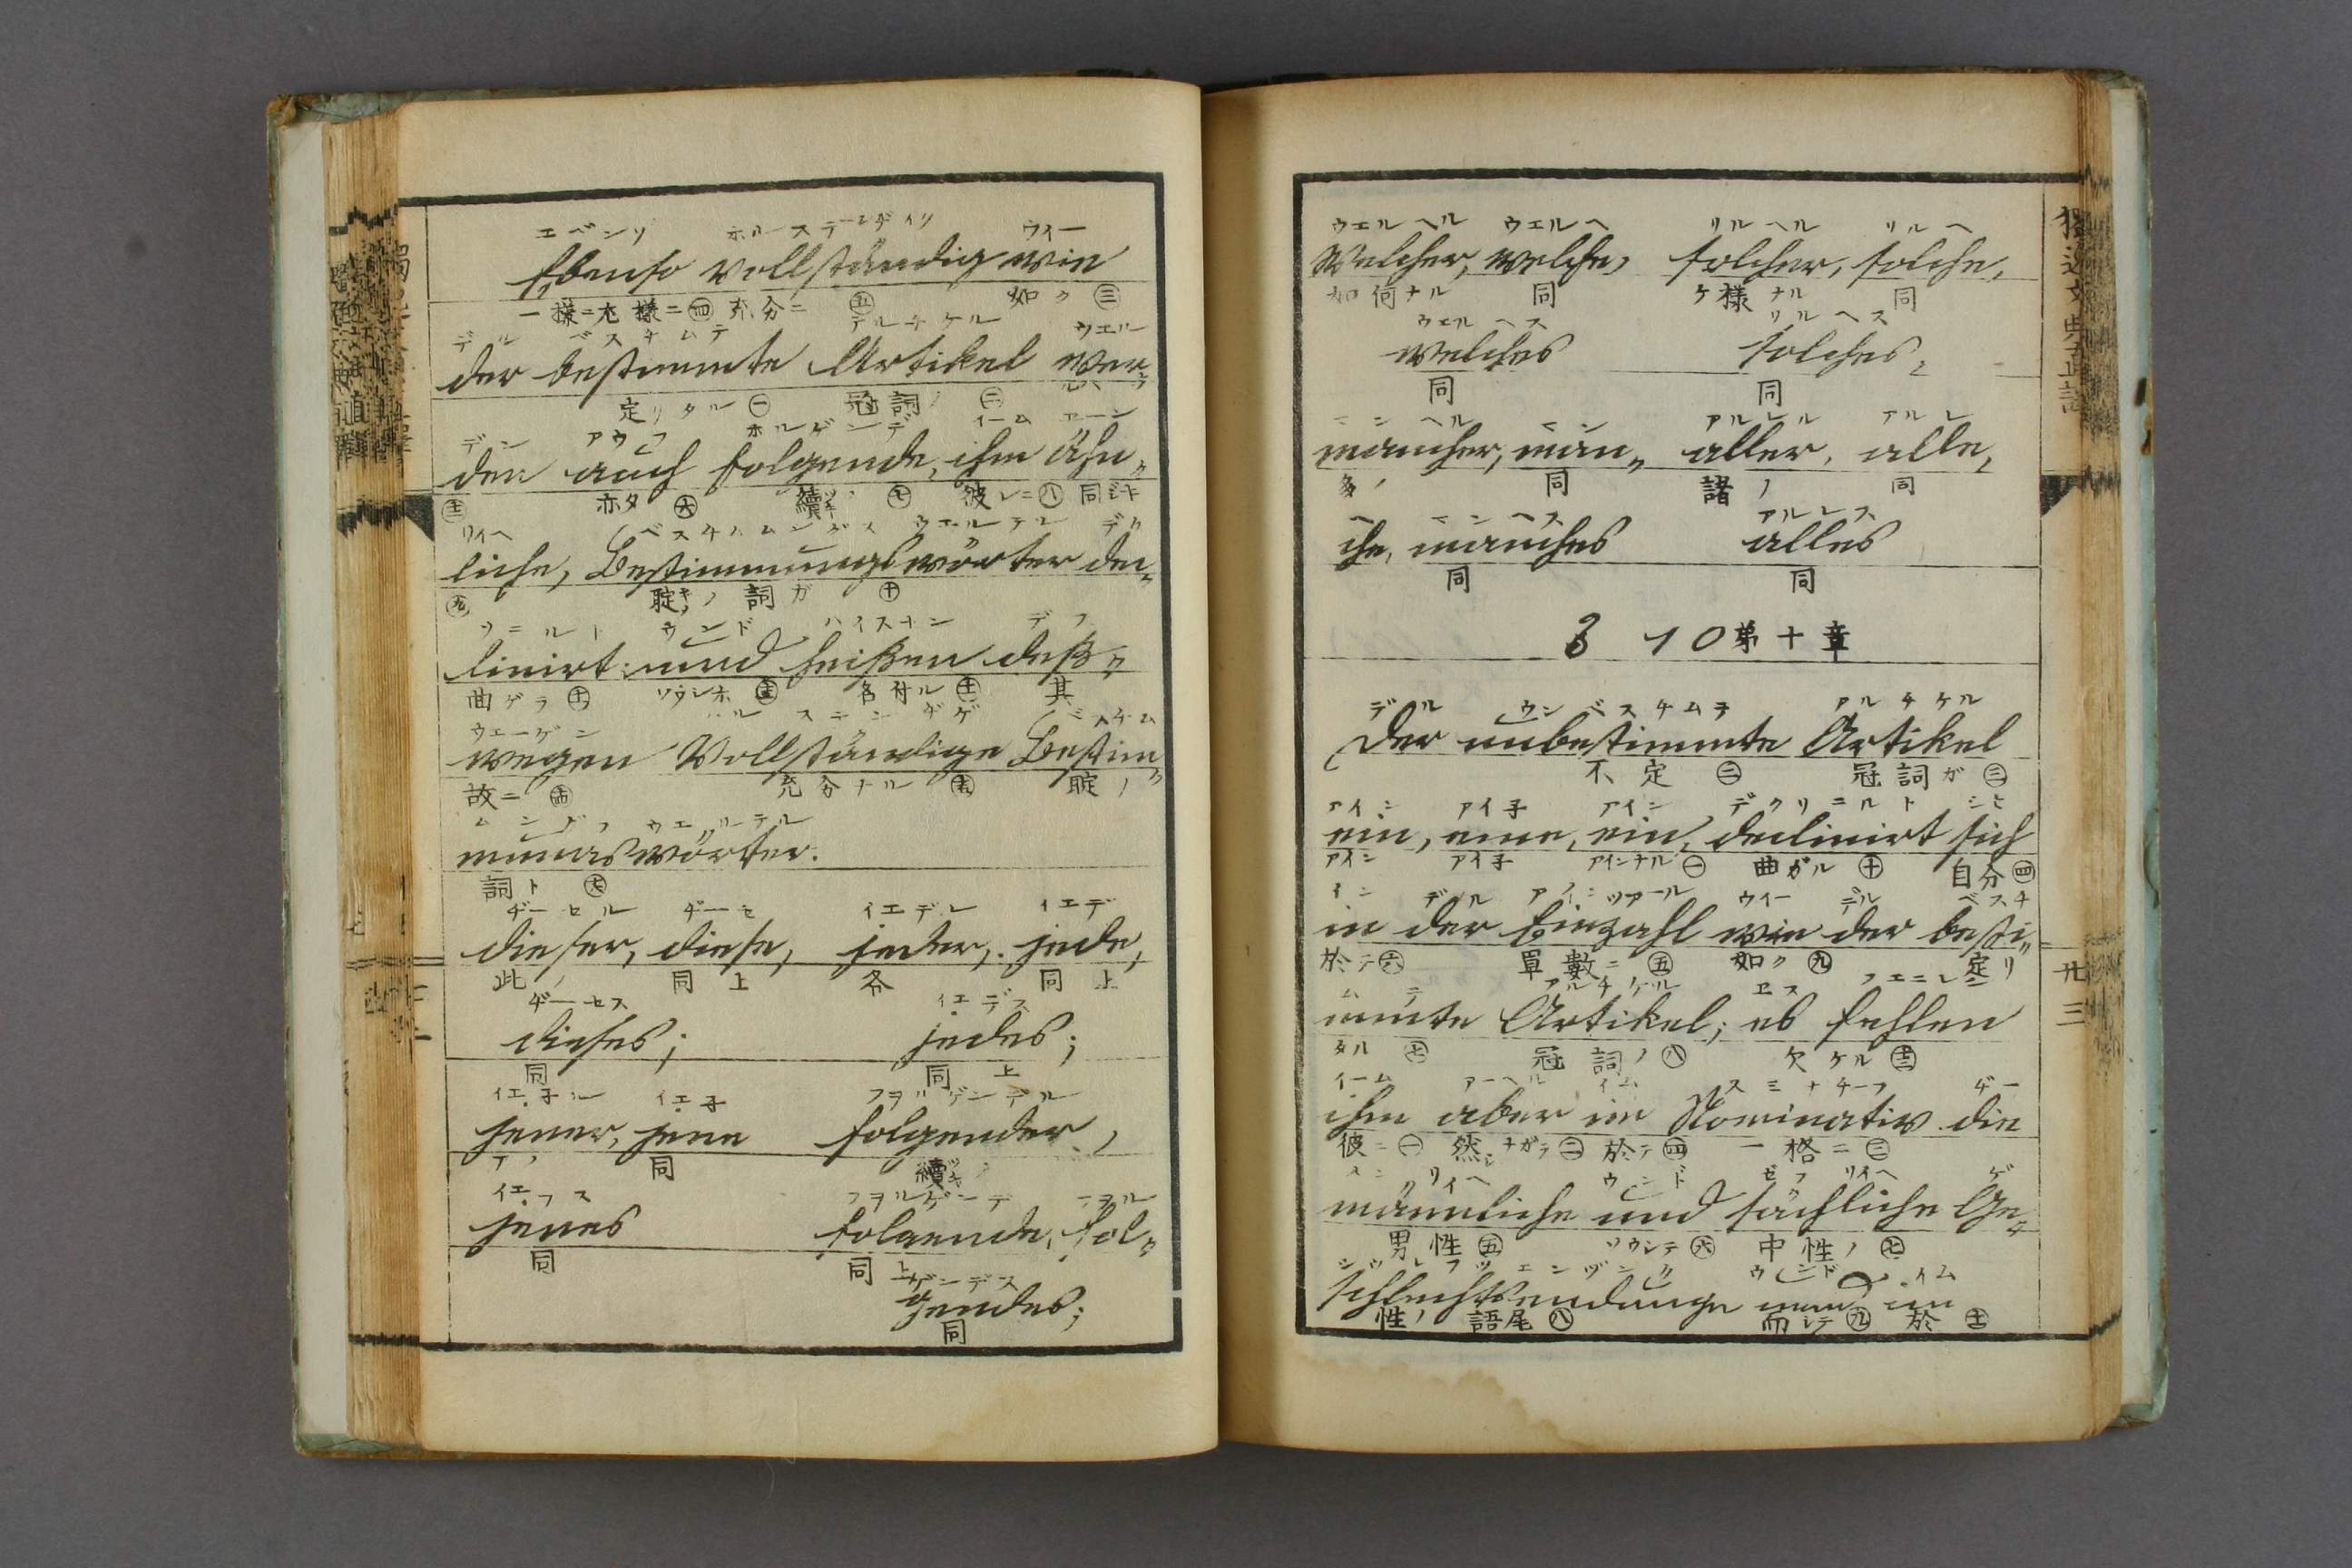 エベンソ ホルステーンヂイヒ ウイー
Ebenso vollständig wie
一樣ニ尤樣ニ㊃ 充分ニ ㊄ 如ク ㊂
デル ベスチムテ アルチケル ウエル
der bestimmte Artikel wer„
定リタル ㊀ 冠詞ノ ㊁
デン アウフ ホルゲンデ イーム アーン
den auch folgende, ihm ähn„
亦タ ㊅ 續キ ㊆ 彼レニ ㊇ 同シキ
リイヘ ベスチムムングス ウエルテル デク
liche, Bestimmungswörter dec„
㊈ 聢キノ 詞ガ ㊉
リニルト ウンド ハイスセン デス
linirt: und heißen deß„
曲ゲラ ソウシホ 名付ル 其
ウエーゲン ホルステンヂゲ ベスチム
wegen Vollständige Bestim„
故ニ 充分ナル 聢ノ
ムングス ウエルテル
mungswörter.
詞ト
ヂーセル ヂーセ イエデル イエデ
dieser, diese, jeder, jede,
此ノ 同上 各 同上
ヂーセス イエデス
dieses; jedes;
同 同上
イエ子ル イエ子 フヲルゲンデル
jener, jene folgender,
アノ 同 續キ
イエ子ス フヲルゲンデ フヲル
jenes folgende, fol„
同 同上
ゲンデス
gendes;
同
ウエルヘル ウエルヘ ソルヘル ソルヘ
Welcher, welche, solcher, solche,
如何ナル 同 ケ樣ナル 同
ウエルヘス ソルヘス
welches solches,
同 同
マンヘル マン アルレル アルレ
mancher, man„ aller, alle,
多ノ 同 諸ノ 同
ヘ マンヘス アルレス
che, manches alles
同 同
§ 10 第十章
デル ウンベスチムテ アルチケル
Der unbestimmte Artikel
不定 ㊁ 冠詞ガ ㊂
アイン アイ子 アイン デクリニルト シヒ
ein, eine, ein, declinirt sich
アイン アイ子 アインナル ㊀ 曲ガル ㊉ 自分 ㊃
イン デル アインツアール ウイー デル ベスチ
in der Einzahl wie der besti„
於テ ㊅ 單數ニ ㊄ 如ク ㊈ 定リ
ムテ アルチケル エス フエーレン
mmte Artikel; es fehlen
タル ㊆ 冠詞ノ ㊇ 欠ケル
イーム アーベル イム ノミナチーフ ヂー
ihm aber im Nominativ die
彼ニ ㊀ 然シナガラ ㊁ 於テ ㊃ 一格ニ ㊂
メンリイヘ ウンド ゼフリイヘ ゲ
männliche und sächliche Ge„
男性 ㊄ ソウシテ ㊅ 中性ノ ㊆
シユレフツエンヅング ウンド イム
schlechtsendunge und im
性ノ 語尾 ㊇ 而シテ ㊈ 於
廿三